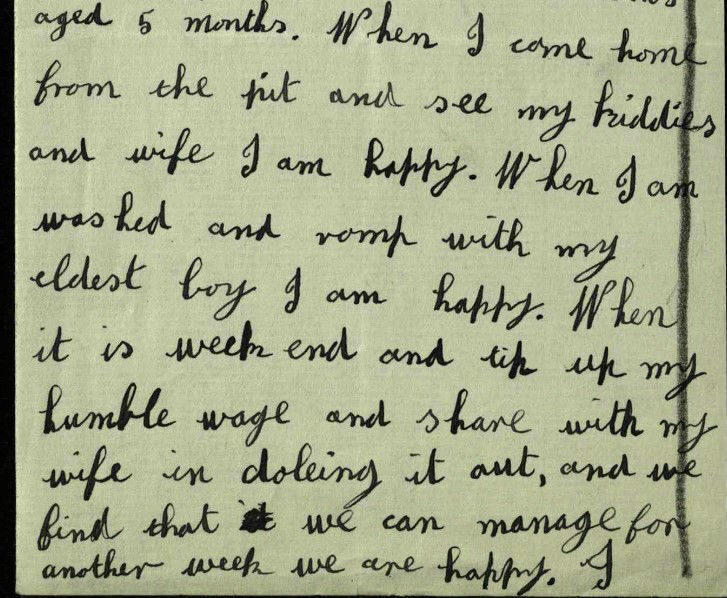 aged 5 months. When I come home
from the pit and see my kiddies
and wife I am happy. When I am
washed and romp with my
eldest boy I am happy. When
it is week end and tip up my
humble wage and share with my
wife in doleing it out, and we
find that we can manage for
another week we are happy. I